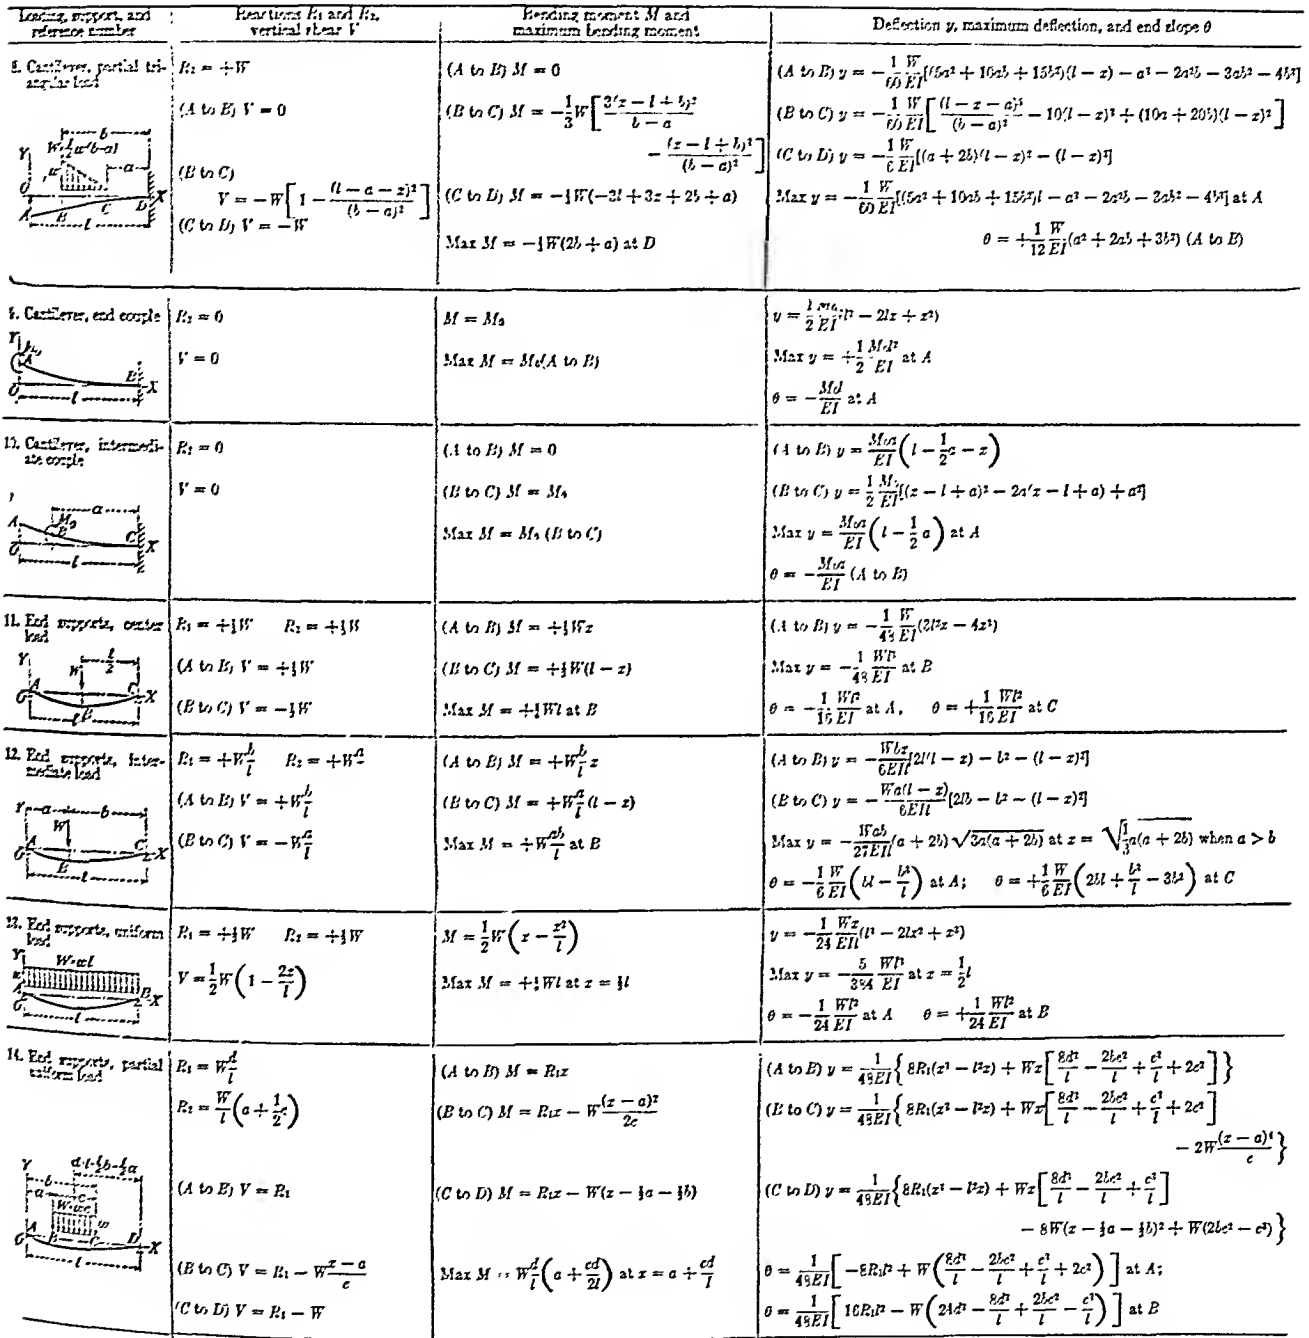 Loading, support, and reference number
Reactions R₁ and R₂, vertical shear V
Bending moment M and maximum bending moment
Deflection y, maximum deflection, and end slope θ
8. Cantilever, partial triangular load
R₂ = +W
(A to B) V = 0
(B to C)
V = −W[1 − (l − a − x)²/(b − a)²]
(C to D) V = −W
(A to B) M = 0
(C to D) M = −⅓W(−3l + 3x + 2b + a)
Max M = −⅓W(2b + a) at D
(A to B) y = −1/60 W/EI[(5a² + 10ab + 15b²)(l − x) − a³ − 2a²b − 3ab² − 4b³]
Max y = −1/60 W/EI[(5a² + 10ab + 15b²)l − a³ − 2a²b − 3ab² − 4b³] at A
θ = +1/12 W/EI(a² + 2ab + 3b²) (A to B)
9. Cantilever, end couple
R₂ = 0
V = 0
M = M₀
Max M = M₀(A to B)
Max y = +1/2 M₀l²/EI at A
θ = −M₀l/EI at A
10. Cantilever, intermediate couple
R₂ = 0
V = 0
(A to B) M = 0
(B to C) M = M₀
Max M = M₀ (B to C)
(A to B) y = M₀a/EI(l − 1/2 a − x)
(B to C) y = 1/2 M₀/EI[(x − l + a)² − 2a(x − l + a) + a²]
Max y = M₀a/EI(l − 1/2 a) at A
θ = −M₀a/EI (A to B)
11. End supports, center load
R₁ = +½W R₂ = +½W
(A to B) V = +½W
(B to C) V = −½W
(A to B) M = +½Wx
(B to C) M = +½W(l − x)
Max M = +¼Wl at B
(A to B) y = −1/48 W/EI(3l²x − 4x³)
Max y = −1/48 Wl³/EI at B
θ = −1/16 Wl²/EI at A, θ = +1/16 Wl²/EI at C
12. End supports, intermediate load
R₁ = +W b/l R₂ = +W a/l
(A to B) V = +W b/l
(B to C) V = −W a/l
(A to B) M = +W b/l x
(B to C) M = +W a/l (l − x)
Max M = +W ab/l at B
(A to B) y = −Wbx/6EIl[2l(l − x) − b² − (l − x)²]
(B to C) y = −Wa(l − x)/6EIl[2lb − b² − (l − x)²]
Max y = −Wab/27EIl(a + 2b)√3a(a + 2b) at x = √⅓a(a + 2b) when a > b
θ = −1/6 W/EI(bl − b³/l) at A; θ = +1/6 W/EI(2bl + b³/l − 3b²) at C
13. End supports, uniform load
W=wl
R₁ = +½W R₂ = +½W
V = 1/2 W(1 − 2x/l)
M = 1/2 W(x − x²/l)
Max M = +⅛Wl at x = ½l
y = −1/24 Wx/EIl(l³ − 2lx² + x³)
Max y = −5/384 Wl³/EI at x = 1/2 l
θ = −1/24 Wl²/EI at A θ = +1/24 Wl²/EI at B
14. End supports, partial uniform load
R₁ = W d/l
R₂ = W/l(a + 1/2 c)
(A to B) V = R₁
(B to C) V = R₁ − W (x − a)/c
(C to D) V = R₁ − W
(A to B) M = R₁x
(B to C) M = R₁x − W (x − a)²/2c
(C to D) M = R₁x − W(x − ½a − ½b)
Max M = W d/l(a + cd/2l) at x = a + cd/l
(A to B) y = 1/48EI{8R₁(x³ − l²x) + Wx[8d³/l − 2bc²/l + c³/l + 2c²]}
(B to C) y = 1/48EI{8R₁(x³ − l²x) + Wx[8d³/l − 2bc²/l + c³/l + 2c²]
− 2W (x − a)⁴/c}
(C to D) y = 1/48EI{8R₁(x³ − l²x) + Wx[8d³/l − 2bc²/l + c³/l]
− 8W(x − ½a − ½b)³ + W(2bc² − c³)}
θ = 1/48EI[−8R₁l² + W(8d³/l − 2bc²/l + c³/l + 2c²)] at A;
θ = 1/48EI[16R₁l² − W(24d² − 8d³/l + 2bc²/l − c³/l)] at B